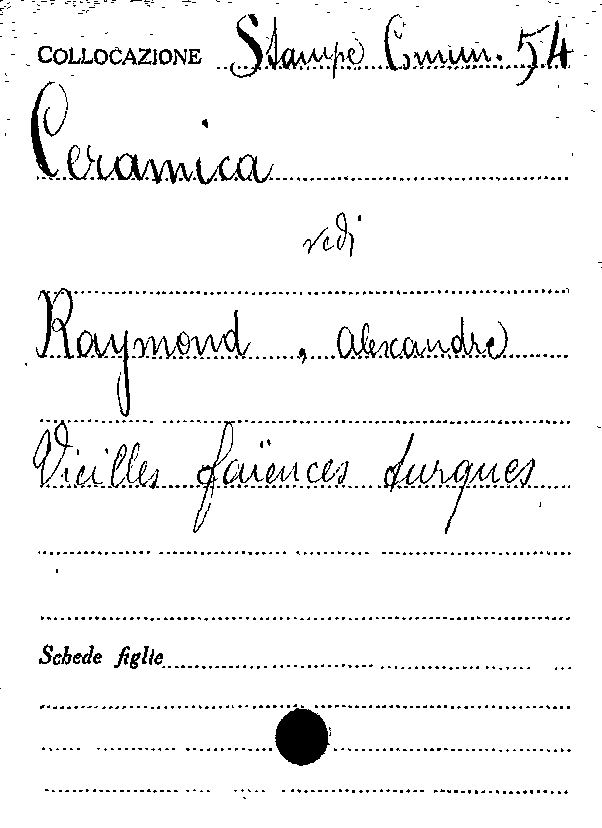 COLLOCAZIONE Stampe Cmim. 54
Ceramica
vedi
Raymond, Alexandre
Vieilles faïences turques
Schede figlie